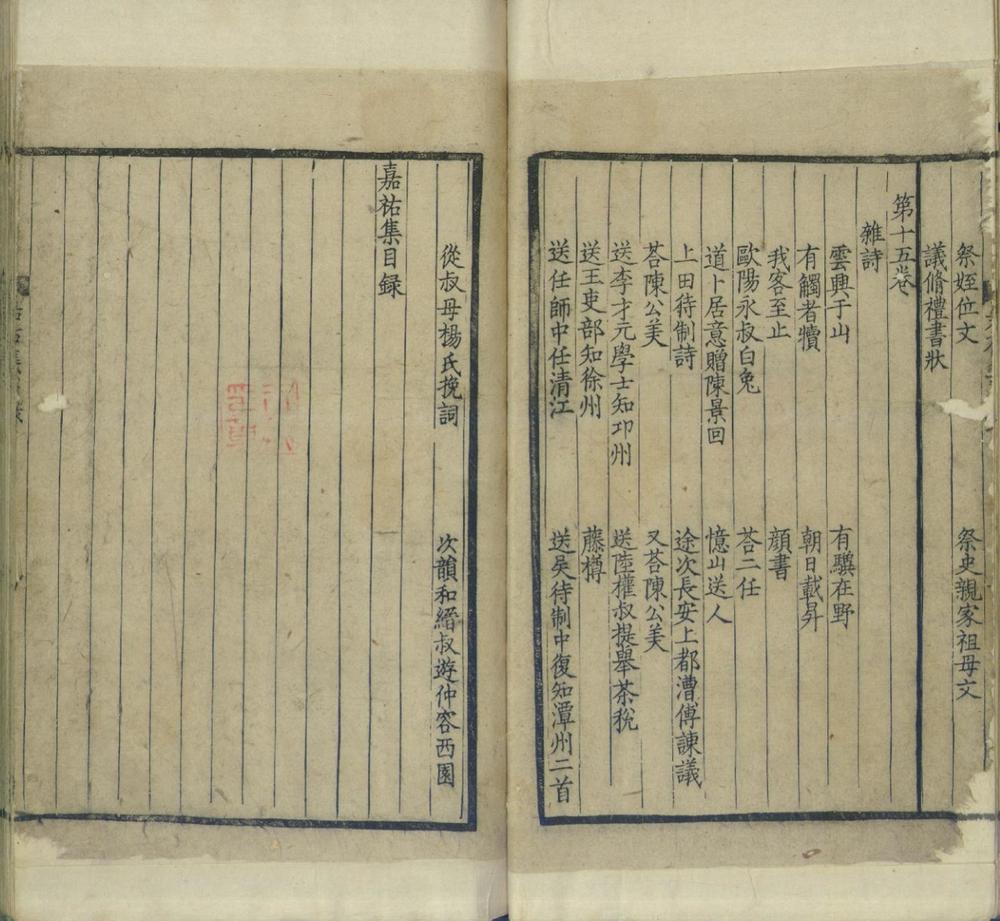 祭姪位文　祭史親家祖母文
議脩禮書狀
第十五卷
雜詩
雲興于山　有驥在野
有觸者犢　朝日載昇
我客至止　顏書
歐陽永叔白兔　荅二任
道卜居意贈陳景回　憶山送人
上田待制詩　途次長安上都漕傅諫議
荅陳公美　又荅陳公美
送李才元學士知邛州　送陸權叔提舉茶稅
送王吏部知徐州　藤樽
送任師中任清江　送吳待制中復知潭州二首
從叔母楊氏挽詞　次韻和縉叔遊仲容西園
嘉祐集目録